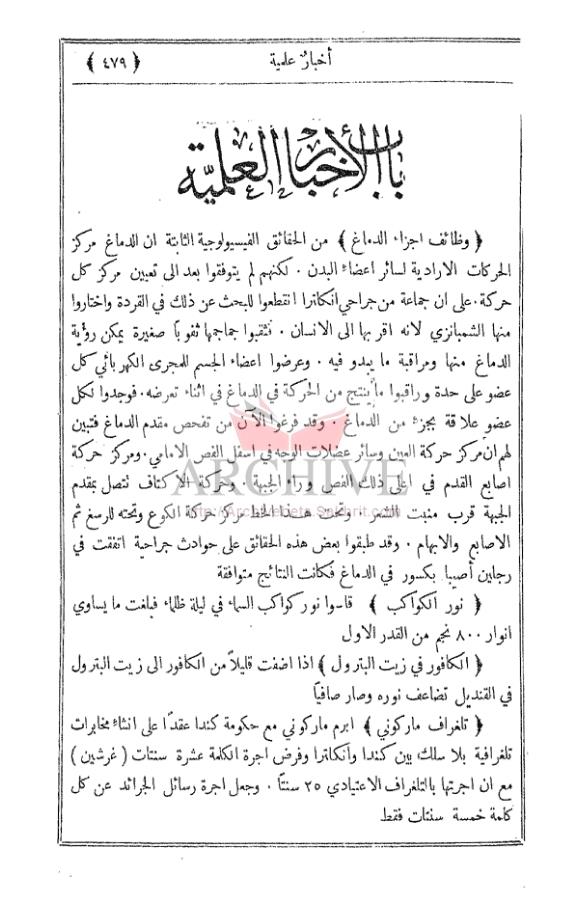 أخبار علمية ﴿ ٤٧٩ ﴾
باب الأخبار العلمية
﴿ وظائف اجزاء الدماغ ﴾ من الحقائق الفيسيولوجية الثابتة ان الدماغ مركز
الحركات الارادية لسائر اعضاء البدن . لكنهم لم يتوفقوا بعد الى تعيين مركز كل
حركة . على ان جماعة من جراحي انكلترا انقطعوا للبحث عن ذلك في القردة واختاروا
منها الشمبانزي لانه اقربها الى الانسان . فثقبوا جماجمها ثقوباً صغيرة يمكن رؤية
الدماغ منها ومراقبة ما يبدو فيه . وعرضوا اعضاء الجسم للمجرى الكهربائي كل
عضو على حدة وراقبوا ما ينتج من الحركة في الدماغ في اثناء تعرضه . فوجدوا لكل
عضو علاقة بجزء من الدماغ . وقد فرغوا الآن من تفحص مقدم الدماغ فتبين
لهم ان مركز حركة العين وسائر عضلات الوجه في اسفل الفص الامامي . ومركز حركة
اصابع القدم في اعلى ذلك الفص وراء الجبهة . وحركة الاكتاف تتصل بمقدم
الجبهة قرب منبت الشعر . وتحت هذا الخط مركز حركة الكوع وتحته للرسغ ثم
الاصابع والابهام . وقد طبقوا بعض هذه الحقائق على حوادث جراحية اتفقت في
رجلين أصيبا بكسور في الدماغ فكانت النتائج متوافقة
﴿ نور الكواكب ﴾ قاسوا نور كواكب السماء في ليلة ظلماء فبلغت ما يساوي
انوار ٨٠٠ نجم من القدر الاول
﴿ الكافور في زيت البترول ﴾ اذا اضفت قليلاً من الكافور الى زيت البترول
في القنديل تضاعف نوره وصار صافياً
﴿ تلغراف ماركوني ﴾ ابرم ماركوني مع حكومة كندا عقداً على انشاء مخابرات
تلغرافية بلا سلك بين كندا وأنكلترا وفرض اجرة الكلمة عشرة سنتات ( غرشين )
مع ان اجرتها بالتلغراف الاعتيادي ٢٥ سنتاً . وجعل اجرة رسائل الجرائد عن كل
كلمة خمسة سنتات فقط
ARCHIVE